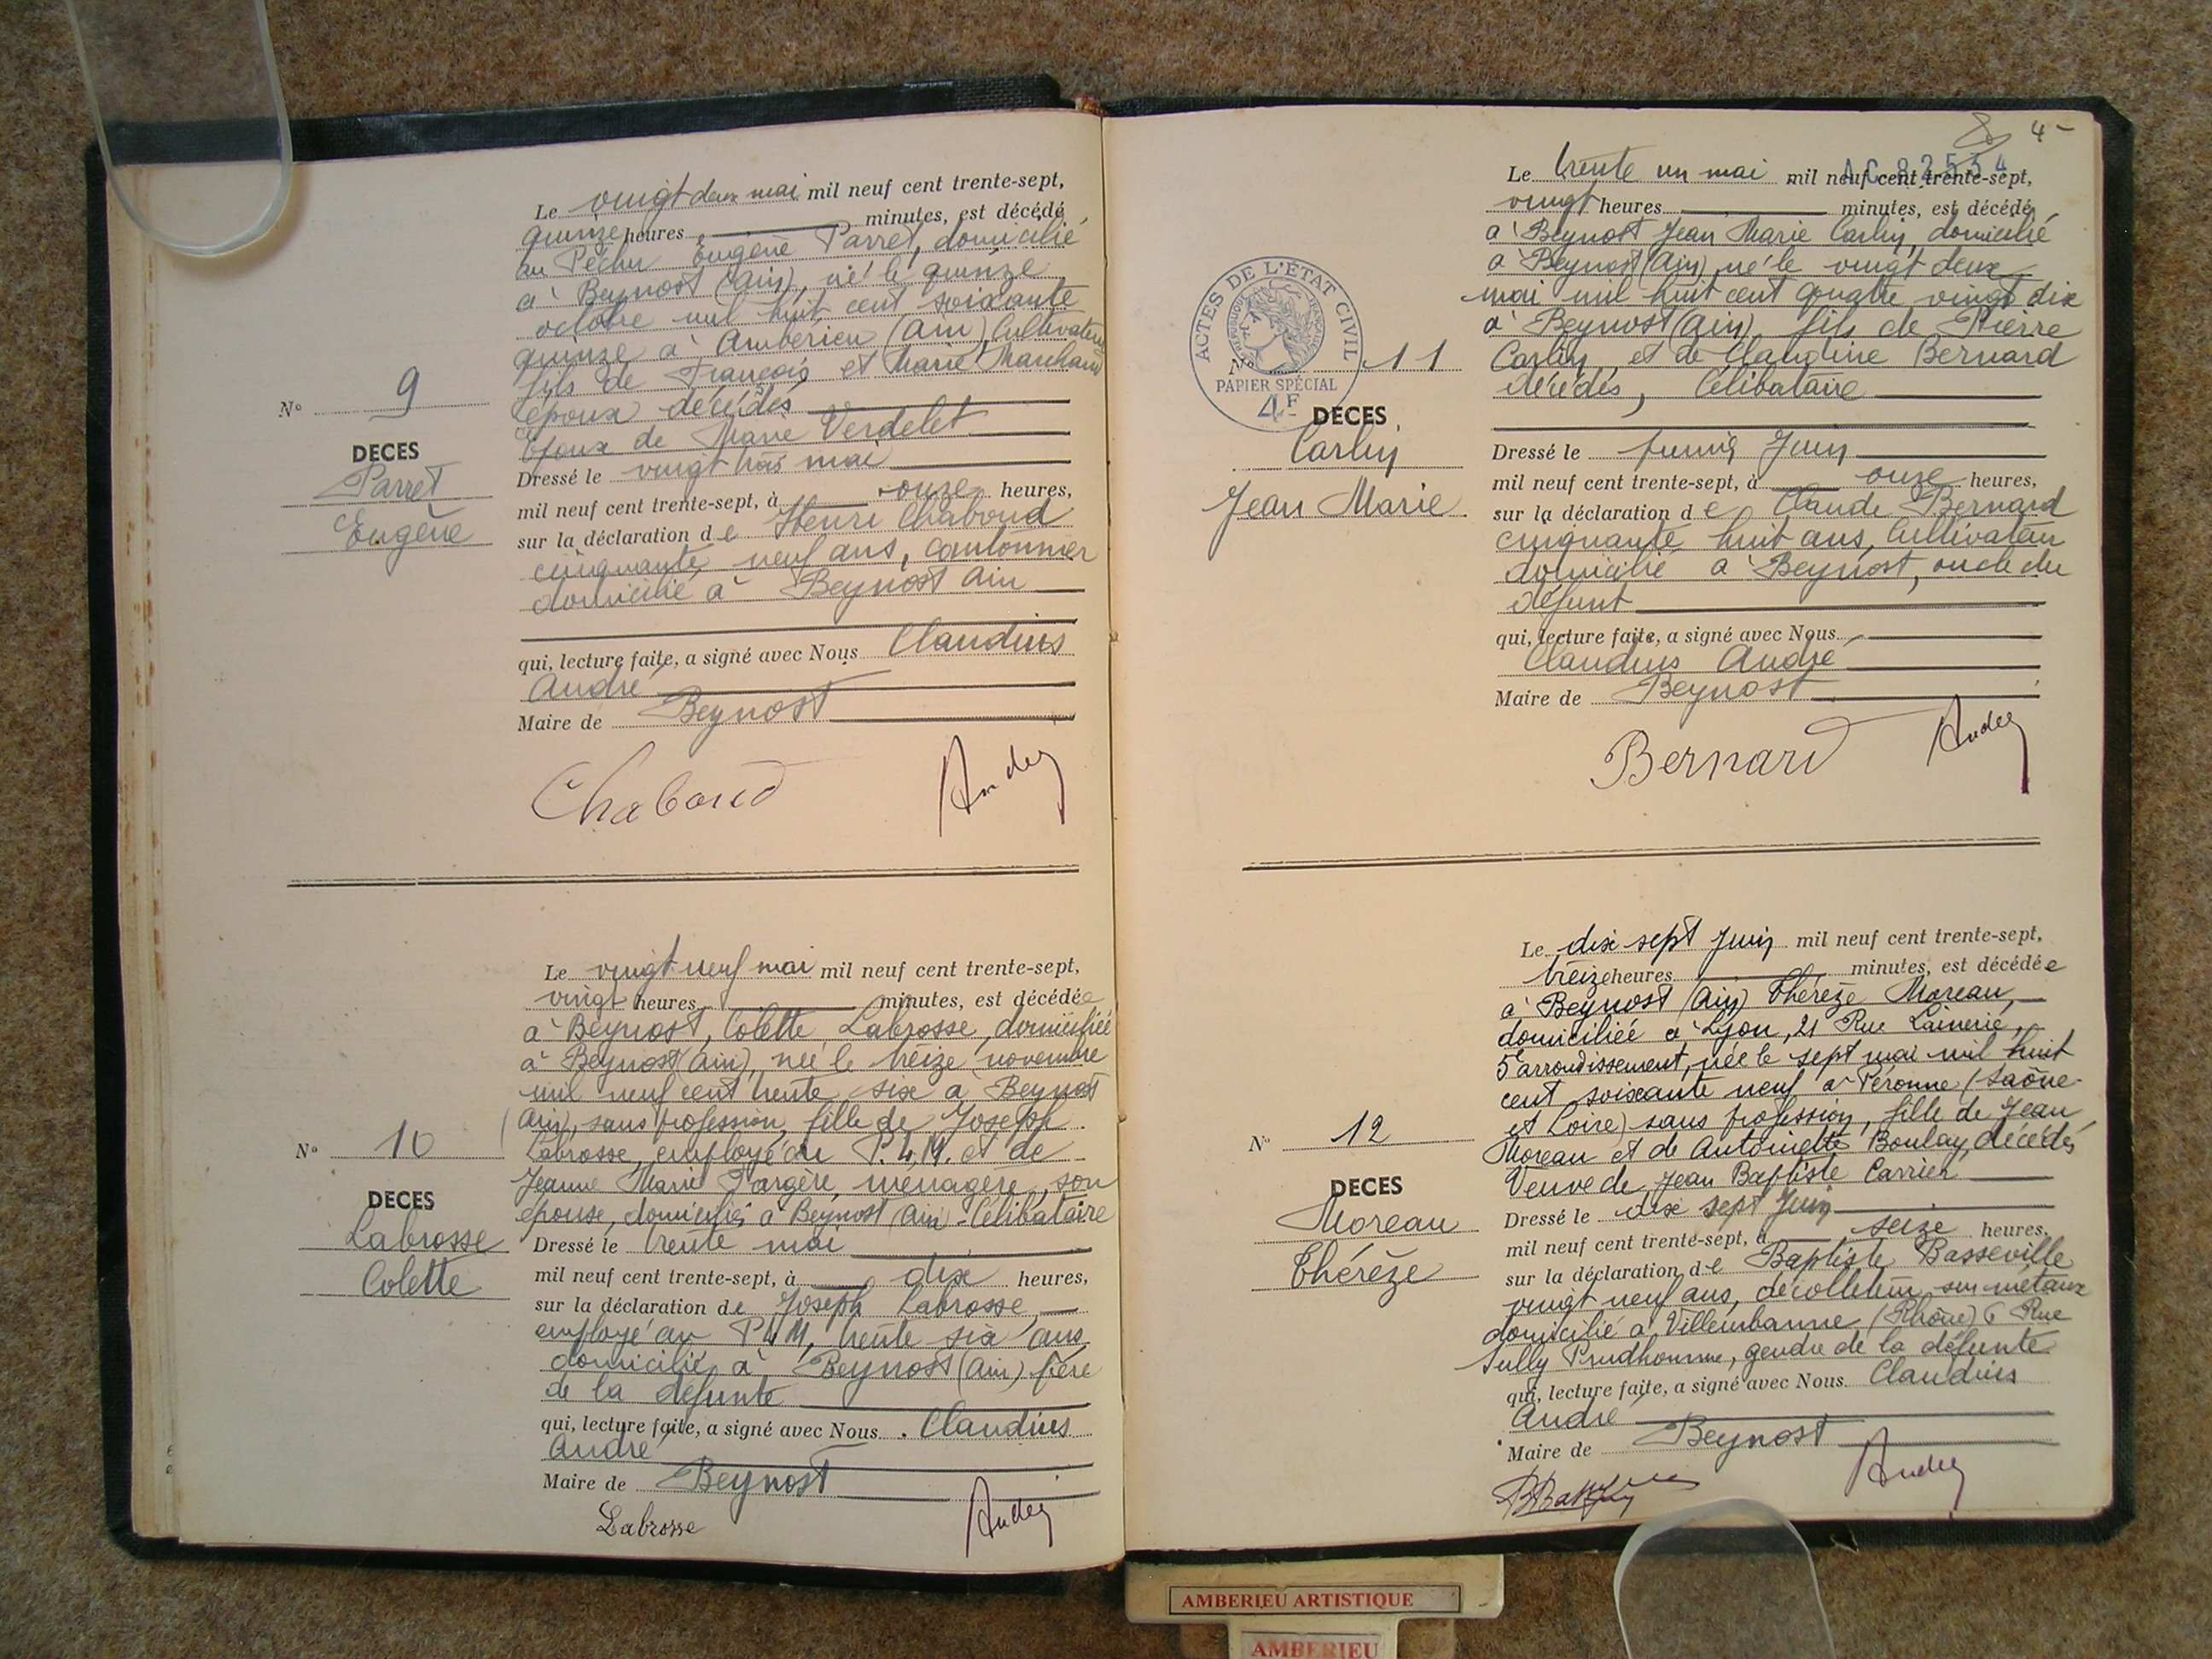 Le vingt deux mai mil neuf cent trente-sept,
quinze heures, minutes, est décédé
au Péchu Eugène Parret, domicilié
à Beynost (Ain), né le quinze
octobre mil huit cent soixante
quinze à Ambérieu (Ain), Cultivateur
fils de François et Marie Marchand
époux décédés
Epoux de Marie Verdelet
Nº 9
DECES
Parret
Eugène
Dressé le vingt trois mai
mil neuf cent trente-sept, à onze heures,
sur la déclaration de Henri Chaboud
cinquante neuf ans, cantonnier
domicilié à Beynost Ain
qui, lecture faite, a signé avec Nous Claudius
André
Maire de Beynost
Chaboud André
Le vingt neuf mai mil neuf cent trente-sept,
vingt heures, minutes, est décédée
à Beynost, Colette Labrosse, domiciliée
à Beynost (Ain), née le treize novembre
mil neuf cent trente six à Beynost
(Ain), sans profession, fille de Joseph
Labrosse, employé au P.L.M. et de
Jeanne Marie Fargère, ménagère, son
épouse, domiciliés à Beynost (Ain) - Célibataire
Nº 10
DECES
Labrosse
Colette
Dressé le trente mai
mil neuf cent trente-sept, à dix heures,
sur la déclaration de Joseph Labrosse,
employé au PLM, trente six ans
domicilié à Beynost (Ain) père
de la défunte
qui, lecture faite, a signé avec Nous Claudius
André
Maire de Beynost
Labrosse André
4
AC 82534
Le trente un mai mil neuf cent trente-sept,
vingt heures minutes, est décédé
à Beynost Jean Marie Carlin, domicilié
à Beynost (Ain), né le vingt deux
mai mil huit cent quatre vingt dix
à Beynost (Ain), fils de Pierre
Carlin, et de Claudine Bernard
décédés, Célibataire
ACTES DE L'ÉTAT CIVIL
RÉPUBLIQUE FRANÇAISE
Nº 11
PAPIER SPÉCIAL
4F
DECES
Carlin
Jean Marie
Dressé le premier Juin
mil neuf cent trente-sept, à onze heures,
sur la déclaration de Claude Bernard
cinquante huit ans, Cultivateur
domicilié à Beynost, oncle du
défunt
qui, lecture faite, a signé avec Nous
Claudius André
Maire de Beynost
Bernard André
Le dix sept Juin mil neuf cent trente-sept,
treize heures minutes, est décédée
à Beynost (Ain) Thérèze Moreau,
domiciliée à Lyon, 21 Rue Lainerie,
5e arrondissement, née le sept mai mil huit
cent soixante neuf à Péronne (Saône-
et Loire) sans profession, fille de Jean
Moreau et de Antoinette Boulay, décédés,
Veuve de Jean Baptiste Carrier
Nº 12
DECES
Moreau
Thérèze
Dressé le dix sept Juin
mil neuf cent trente-sept, à seize heures,
sur la déclaration de Baptiste Basseville
vingt neuf ans, décolleteur sur métaux
domicilié à Villeurbanne (Rhône) 6 Rue
Sully Prudhomme, gendre de la défunte
qui, lecture faite, a signé avec Nous Claudius
André
Maire de Beynost
André
AMBERIEU ARTISTIQUE
AMBERIEU